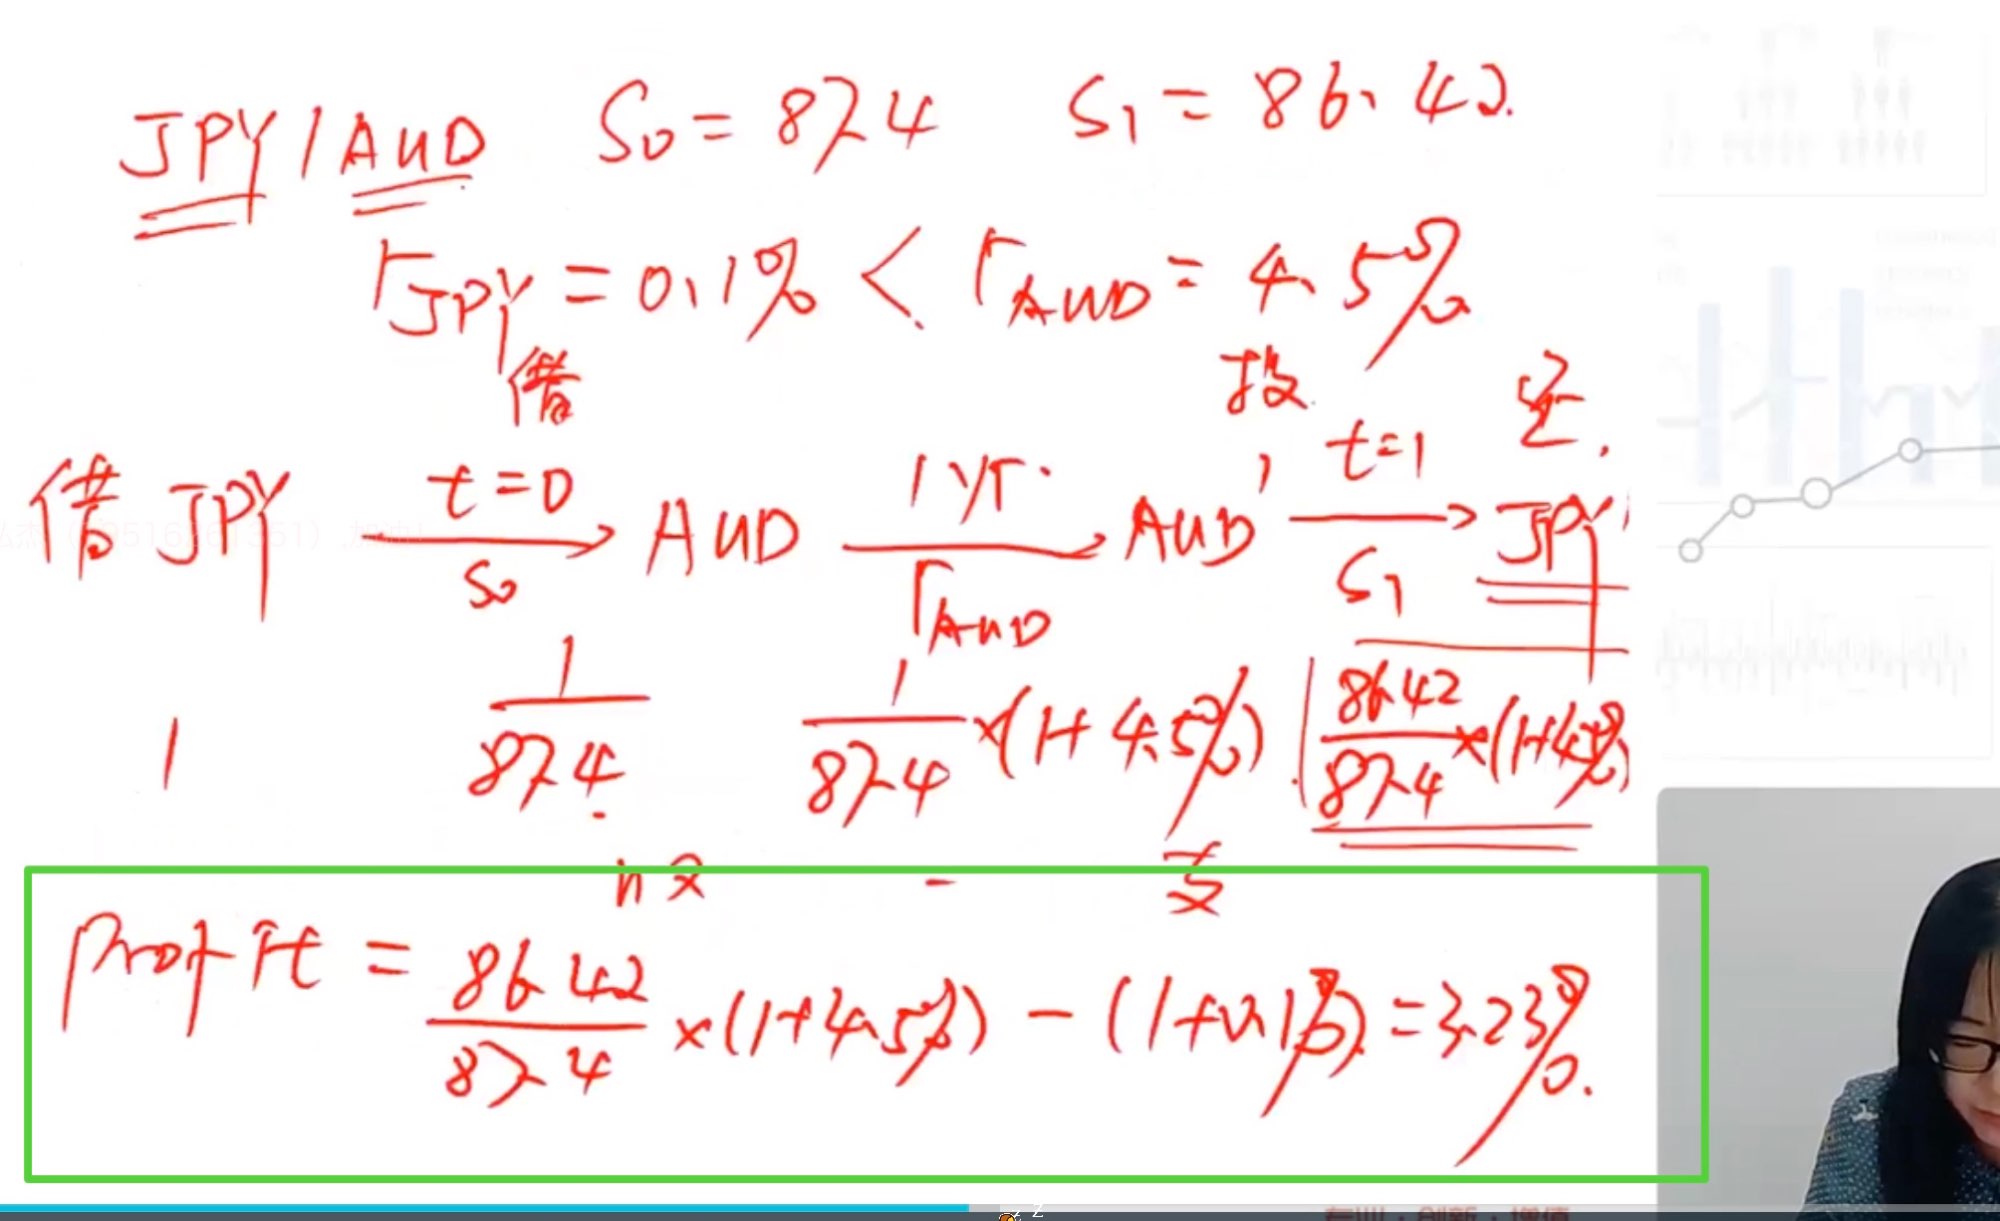 JPY / AUD S₀ = 87.4 S₁ = 86.42
r_JPY = 0.1% < r_AUD = 4.5%
借 投 还
借 JPY t=0 S₀ → AUD 1 yr. r_AUD → AUD' t=1 S₁ → JPY'
1 1/87.4 1/87.4 ×(1+4.5%) 86.42/87.4 ×(1+4.5%)
收 - 支
Profit = 86.42/87.4 ×(1+4.5%) - (1+0.1%) = 3.23%.
专业·创新·增值